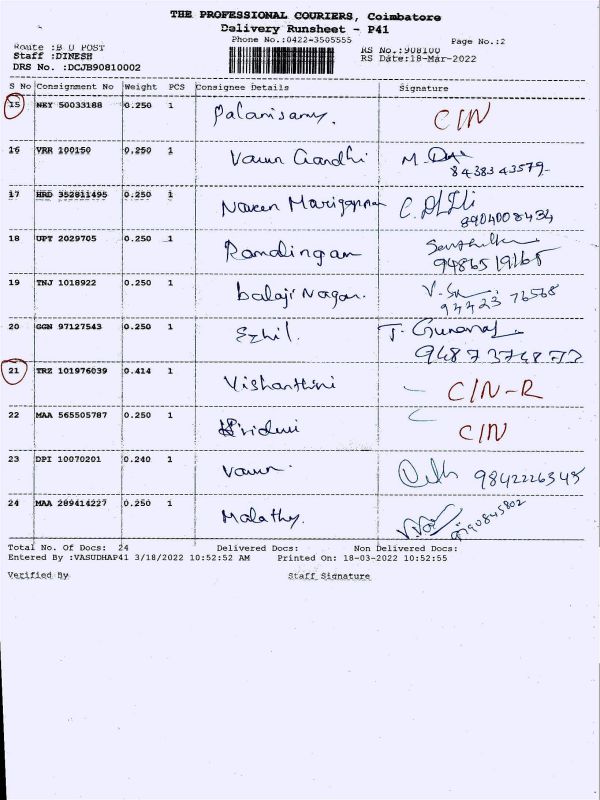 THE PROFESSIONAL COURIERS, Coimbatore
Delivery Runsheet - P41
Phone No.:0422-3505555 Page No.:2
Route :B U POST RS No.:908100
Staff :DINESH RS Date:18-Mar-2022
DRS No. :DCJB90810002
S No Consignment No Weight PCS Consignee Details Signature
15 NEY 50033188 0.250 1 Palanisamy. CIN
16 VRR 100150 0.250 1 Varun Gandhi M.
8438343579
17 HRD 352811495 0.250 1 Naveen Marigappan
8904008434
18 UPT 2029705 0.250 1 Ramalingam
19 TNJ 1018922 0.250 1 balaji Nagar.
94423 76568
20 GGN 97127543 0.250 1 Ezhil.
21 TRZ 101976039 0.414 1 Vishanthini CIN-R
22 MAA 565505787 0.250 1 CIN
23 DPI 10070201 0.240 1 Varun. 9842226345
24 MAA 289414227 0.250 1 Malathy.
Total No. Of Docs: 24 Delivered Docs: Non Delivered Docs:
Entered By :VASUDHAP41 3/18/2022 10:52:52 AM Printed On: 18-03-2022 10:52:55
Verified By Staff Signature